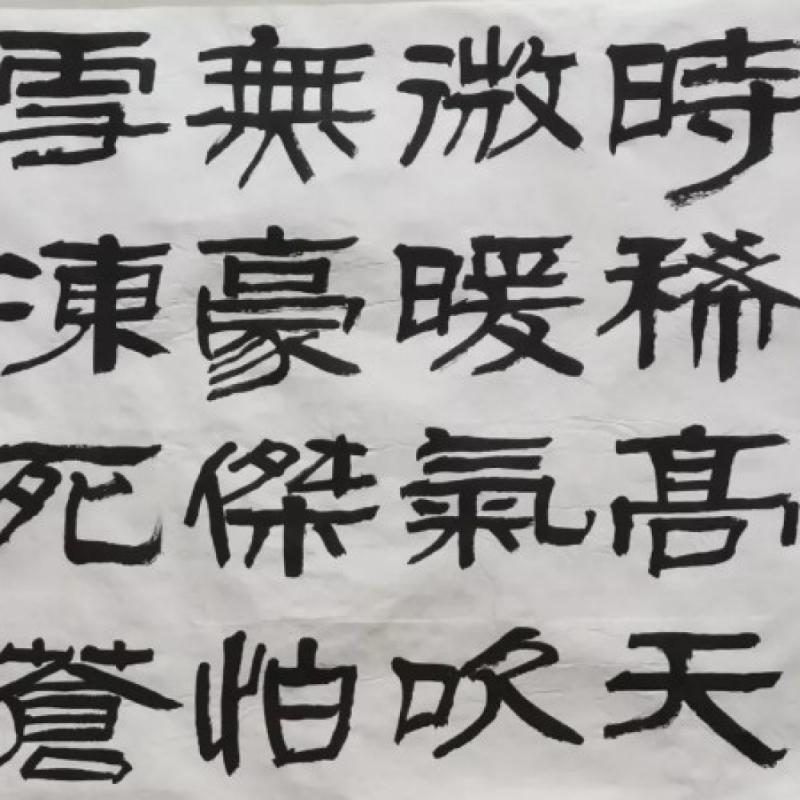 時稀髙天
微暖氣吹
無豪傑怕
雪凍死蒼